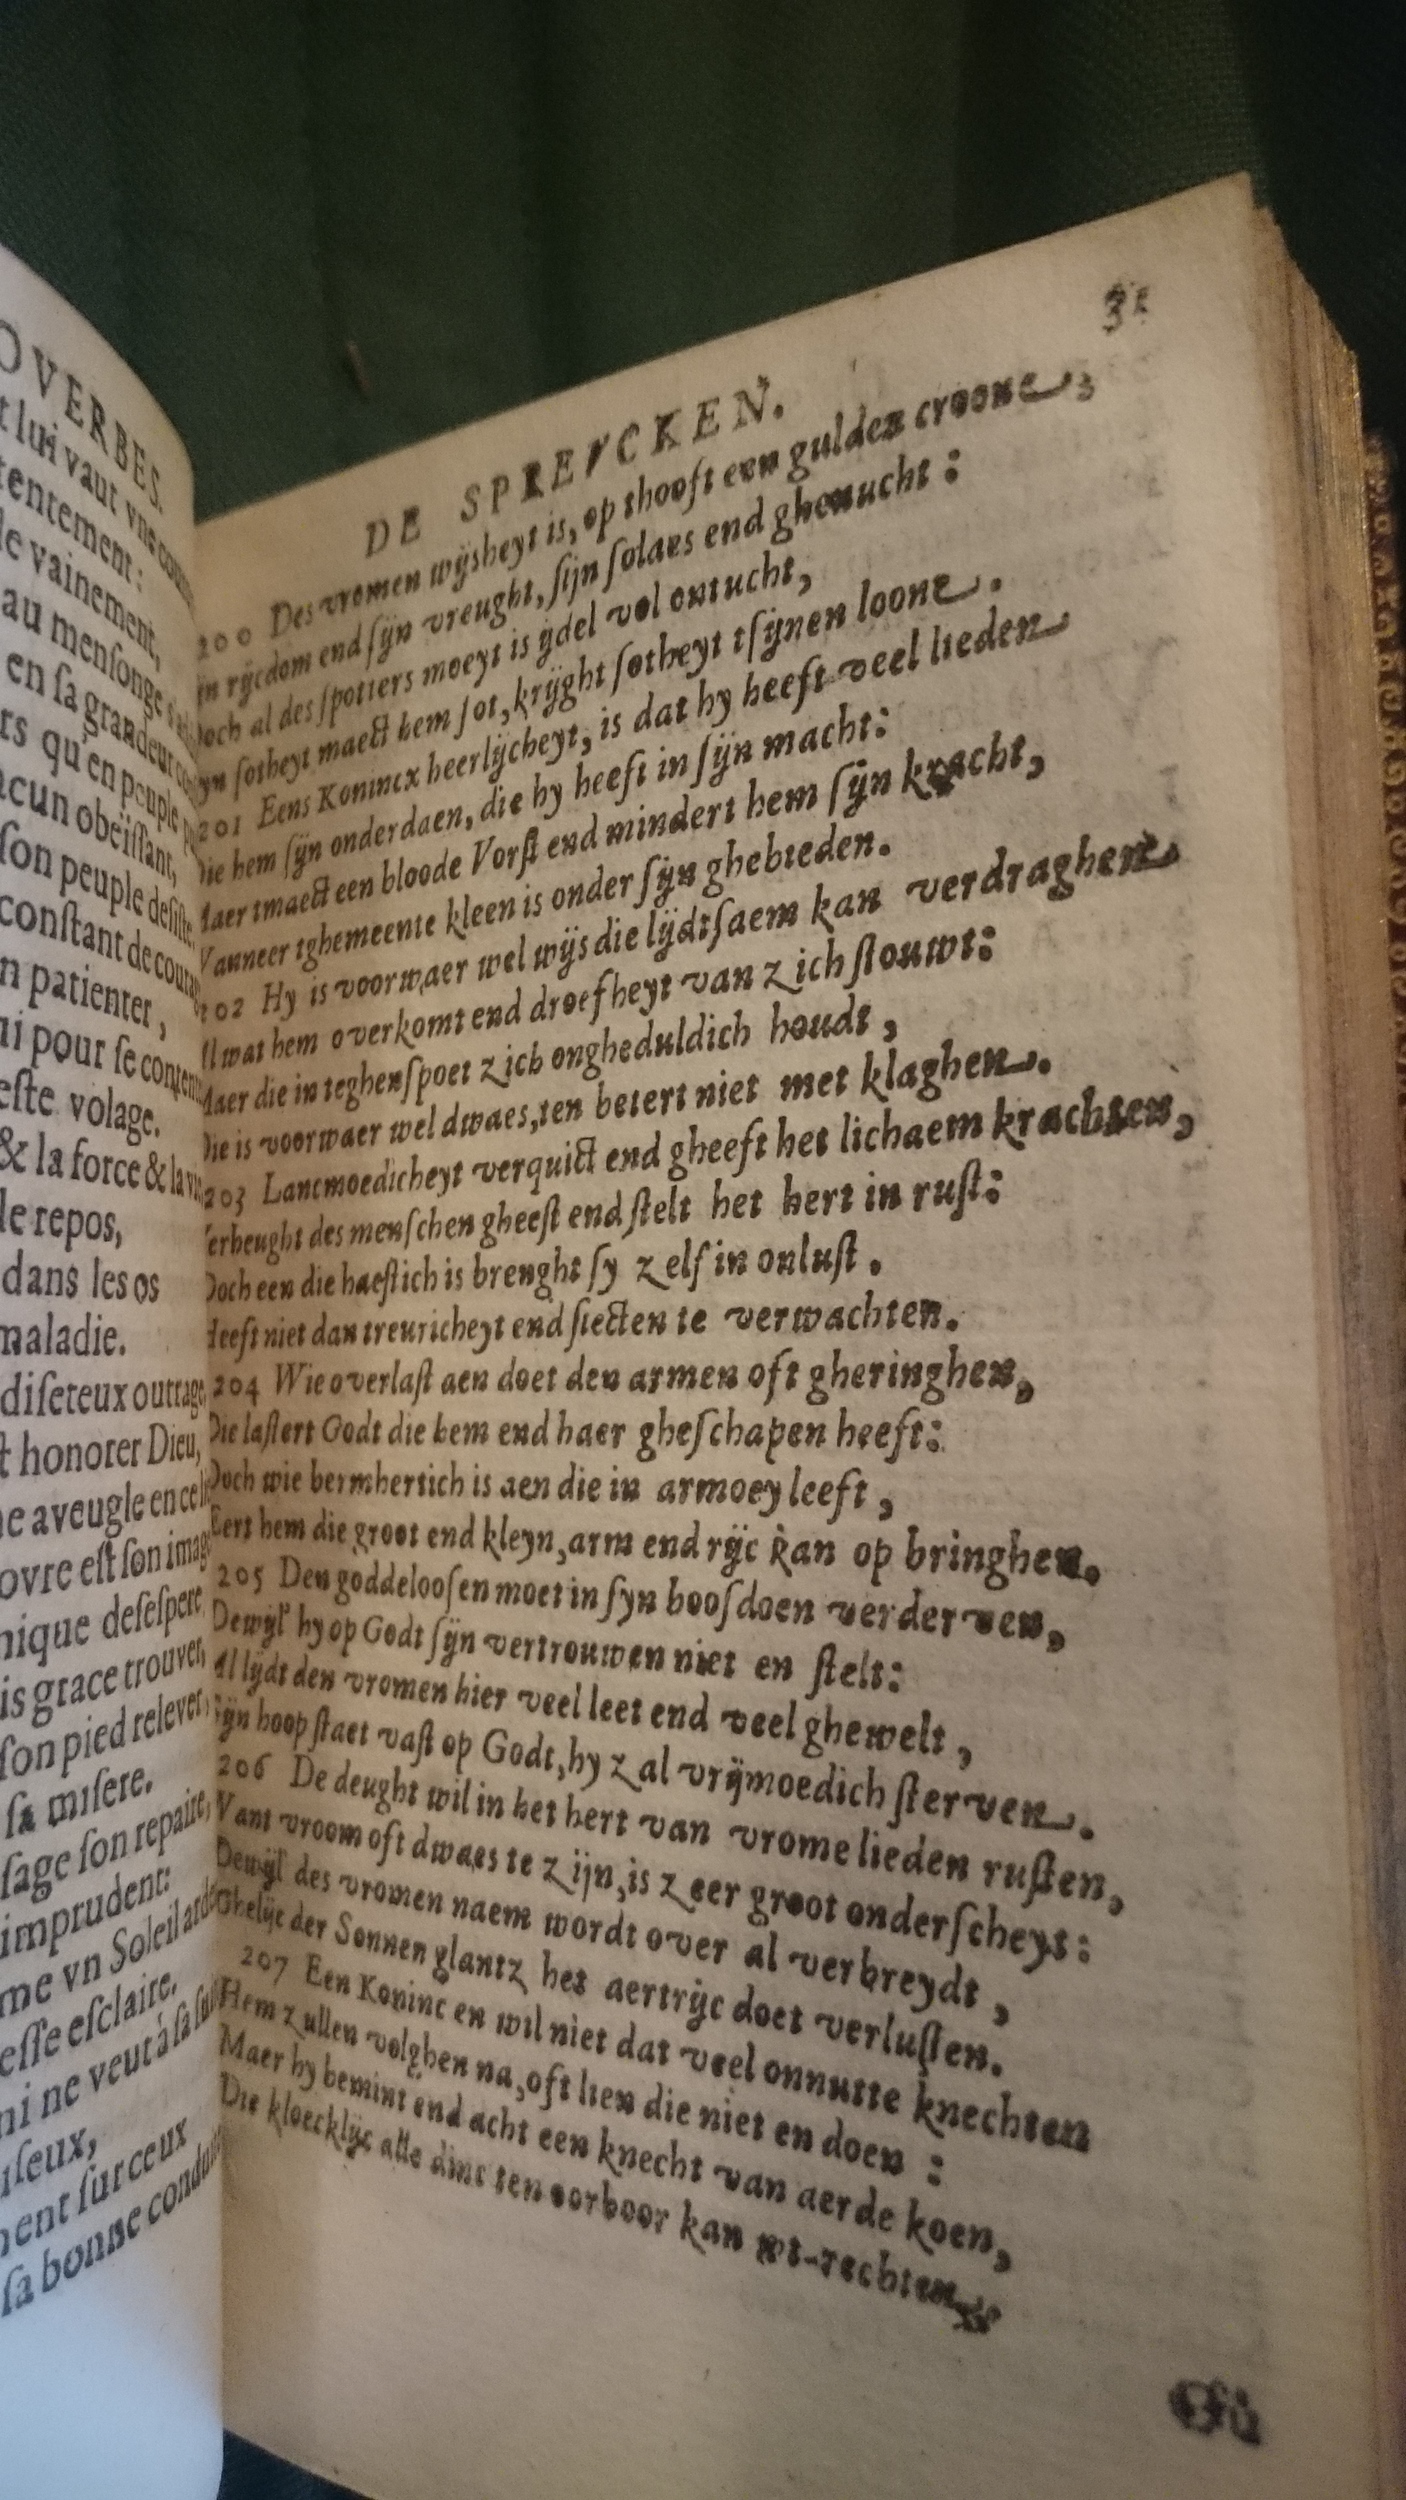 OVERBES.
t lui vaut vne
tentement:
le vainement,
au menſonge
en ſa grandeur
rs qu'en peuple
cun obeïſſant,
ſon peuple deſiſte.
conſtant de courag
n patienter,
ui pour ſe
eſte volage.
& la force & la
de repos,
dans les os
maladie.
diſeteux outrage
t honorer Dieu,
ne aveugle en ce
ovre eſt ſon image
nique deſeſpere
is grace trouver,
ſon pied relever,
ſa miſere.
ſage ſon repaire,
imprudent:
me vn Soleil
eſſe eſclaire.
ni ne veut à ſa
ſeux,
nent ſur ceux
ſa bonne conduite
31
DE SPREVCKEN.
200 Des vromen wijsheyt is, op thooft een gulden croone,
jn rijcdom end ſijn vreught, ſijn ſolaes end ghenucht:
och al des ſpotters moeyt is ijdel vol ontucht,
yn ſotheyt maect hem ſot, krijght ſotheyt tſijnen loone.
201 Eens Konincx heerlijcheyt, is dat hy heeft veel lieden
ie hem ſijn onderdaen, die hy heeft in ſijn macht:
aer tmaect een bloode Vorſt end mindert hem ſijn kracht,
Vanneer tghemeente kleen is onder ſijn ghebieden.
202 Hy is voorwaer wel wijs die lijdtſaem kan verdraghen
l wat hem overkomt end droefheyt van zich ſtouwt:
aer die in teghenſpoet zich ongheduldich houdt,
Die is voorwaer wel dwaes, ten betert niet met klaghen.
203 Lancmoedicheyt verquict end gheeft het lichaem krachten,
erheught des menſchen gheeſt end ſtelt het hert in ruſt:
Doch een die haeſtich is brenght ſy zelf in onluſt.
Heeft niet dan treuricheyt end ſiecten te verwachten.
204 Wie overlaſt aen doet den armen oft gheringhen,
Die laſtert Godt die hem end haer gheſchapen heeft:
Doch wie bermhertich is aen die in armoey leeft,
Eert hem die groot end kleyn, arm end rijc kan op bringhen.
205 Den goddelooſen moet in ſyn boosdoen verderven,
Dewijl' hy op Godt ſijn vertrouwen niet en ſtelt:
Al lijdt den vromen hier veel leet end veel ghewelt,
Sijn hoop ſtaet vaſt op Godt, hy zal vrijmoedich ſterven.
206 De deught wil in het hert van vrome lieden ruſten,
Vant vroom oft dwaes te zijn, is zeer groot onderſcheyt:
Dewijl' des vromen naem wordt over al verbreydt,
Ghelijc der Sonnen glantz het aertrijc doet verluſten.
207 Een Koninc en wil niet dat veel onnutte knechten
Hem zullen volghen na, oft lien die niet en doen:
Maer hy bemint end acht een knecht van aerde koen,
Die kloecklijc alle dinc ten oorboor kan wt-rechten.